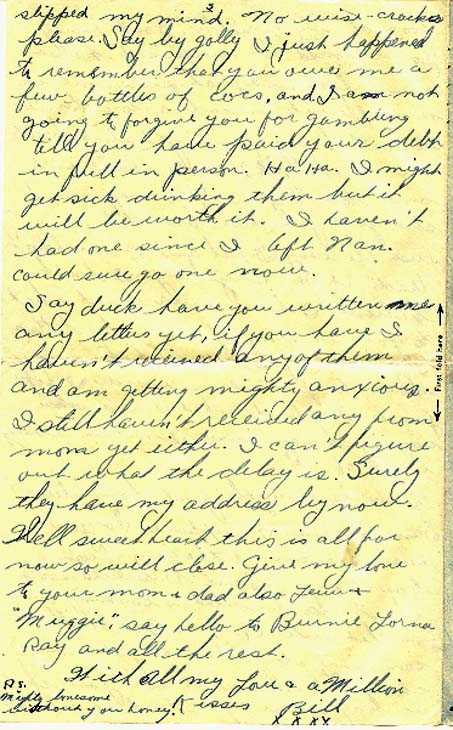 3
slipped my mind. No wise-cracks
please. Say by golly I just happened
to remember that you owe me a
few bottles of cocs, and I am not
going to forgive you for gambling
till you have paid your debt
in full in person. Ha Ha. I might
get sick drinking them but it
will be worth it. I haven't
had one since I left Nan.
could sure go one now.
Say duck have you written me
any letters yet, if you have I
haven't received any of them
and am getting mighty anxious.
I still haven't received any from
mom yet either. I can't figure
out what the delay is. Surely
they have my address by now.
Well sweetheart this is all for
now so will close. Give my love
to your mom & dad also &
"Muggie", say hello to Burnie Lorna
Ray and all the rest.
With all my Love & a Million
Kisses Bill
X X X X
Ps.
Mighty lonesome
without you honey.
First fold here